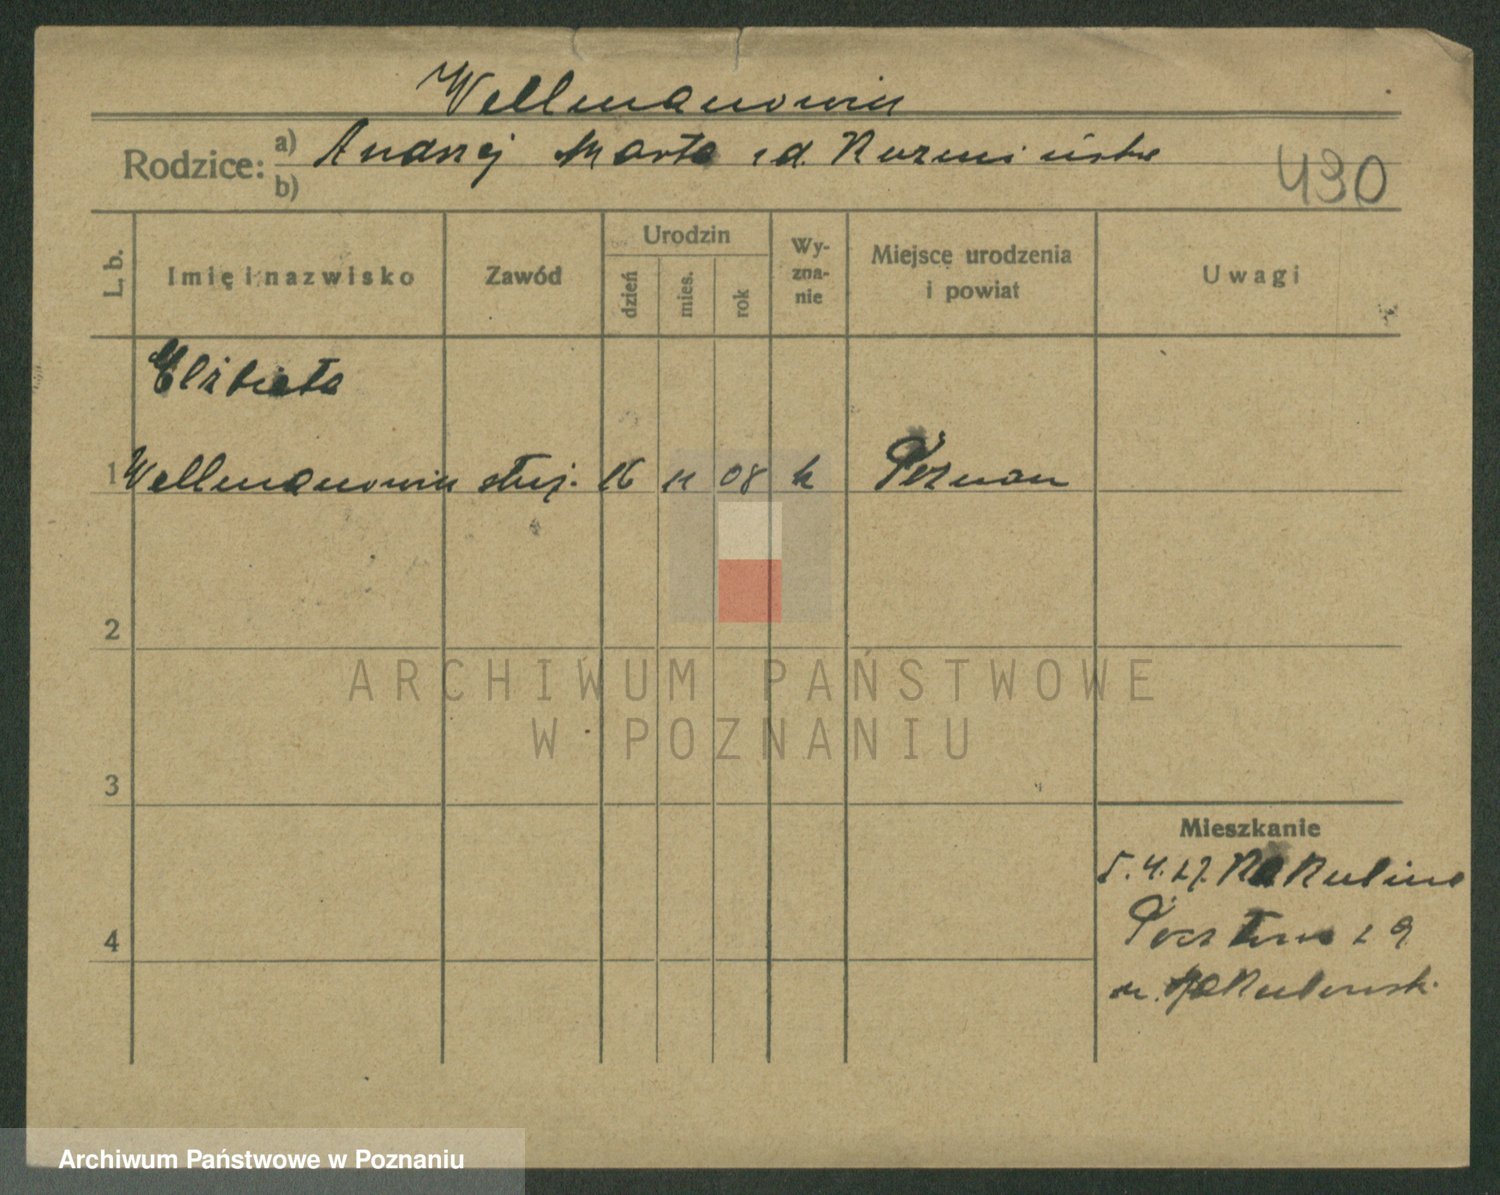 Wellmanowin
Rodzice: a) Andrzej Marta z d. Kuzmińska
b)
430
L. b.
Imię i nazwisko
Zawód
Urodzin
dzień
mies.
rok
Wy-
zna-
nie
Miejsce urodzenia
i powiat
Uwagi
Elżbieta
1 Wellmanowin służ. 16 11 08 k Poznań
2
3
4
Mieszkanie
5.4.27.
29
ARCHIWUM PAŃSTWOWE
W POZNANIU
Archiwum Państwowe w Poznaniu